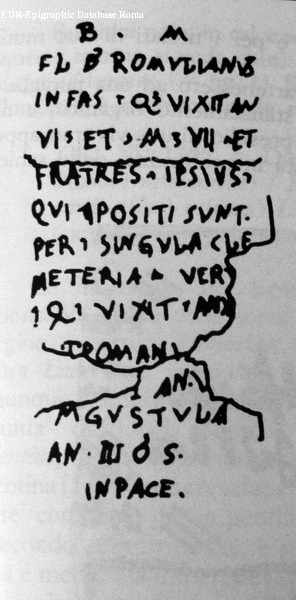 EDR-Epigraphic Database Roma
B · M
FL B ROMVLIANVS
INFAS · Q VIXIT AN
VI · ET · M · VII · ET
FRATRES · IPSIVS ·
QVI POSITI SVNT ·
PER · SINGVLA CLE
METERIA · VER
Q · VIXIT · ANN
ROMANI
AN ·
MGVSTVLA
AN · III S ·
INPACE ·